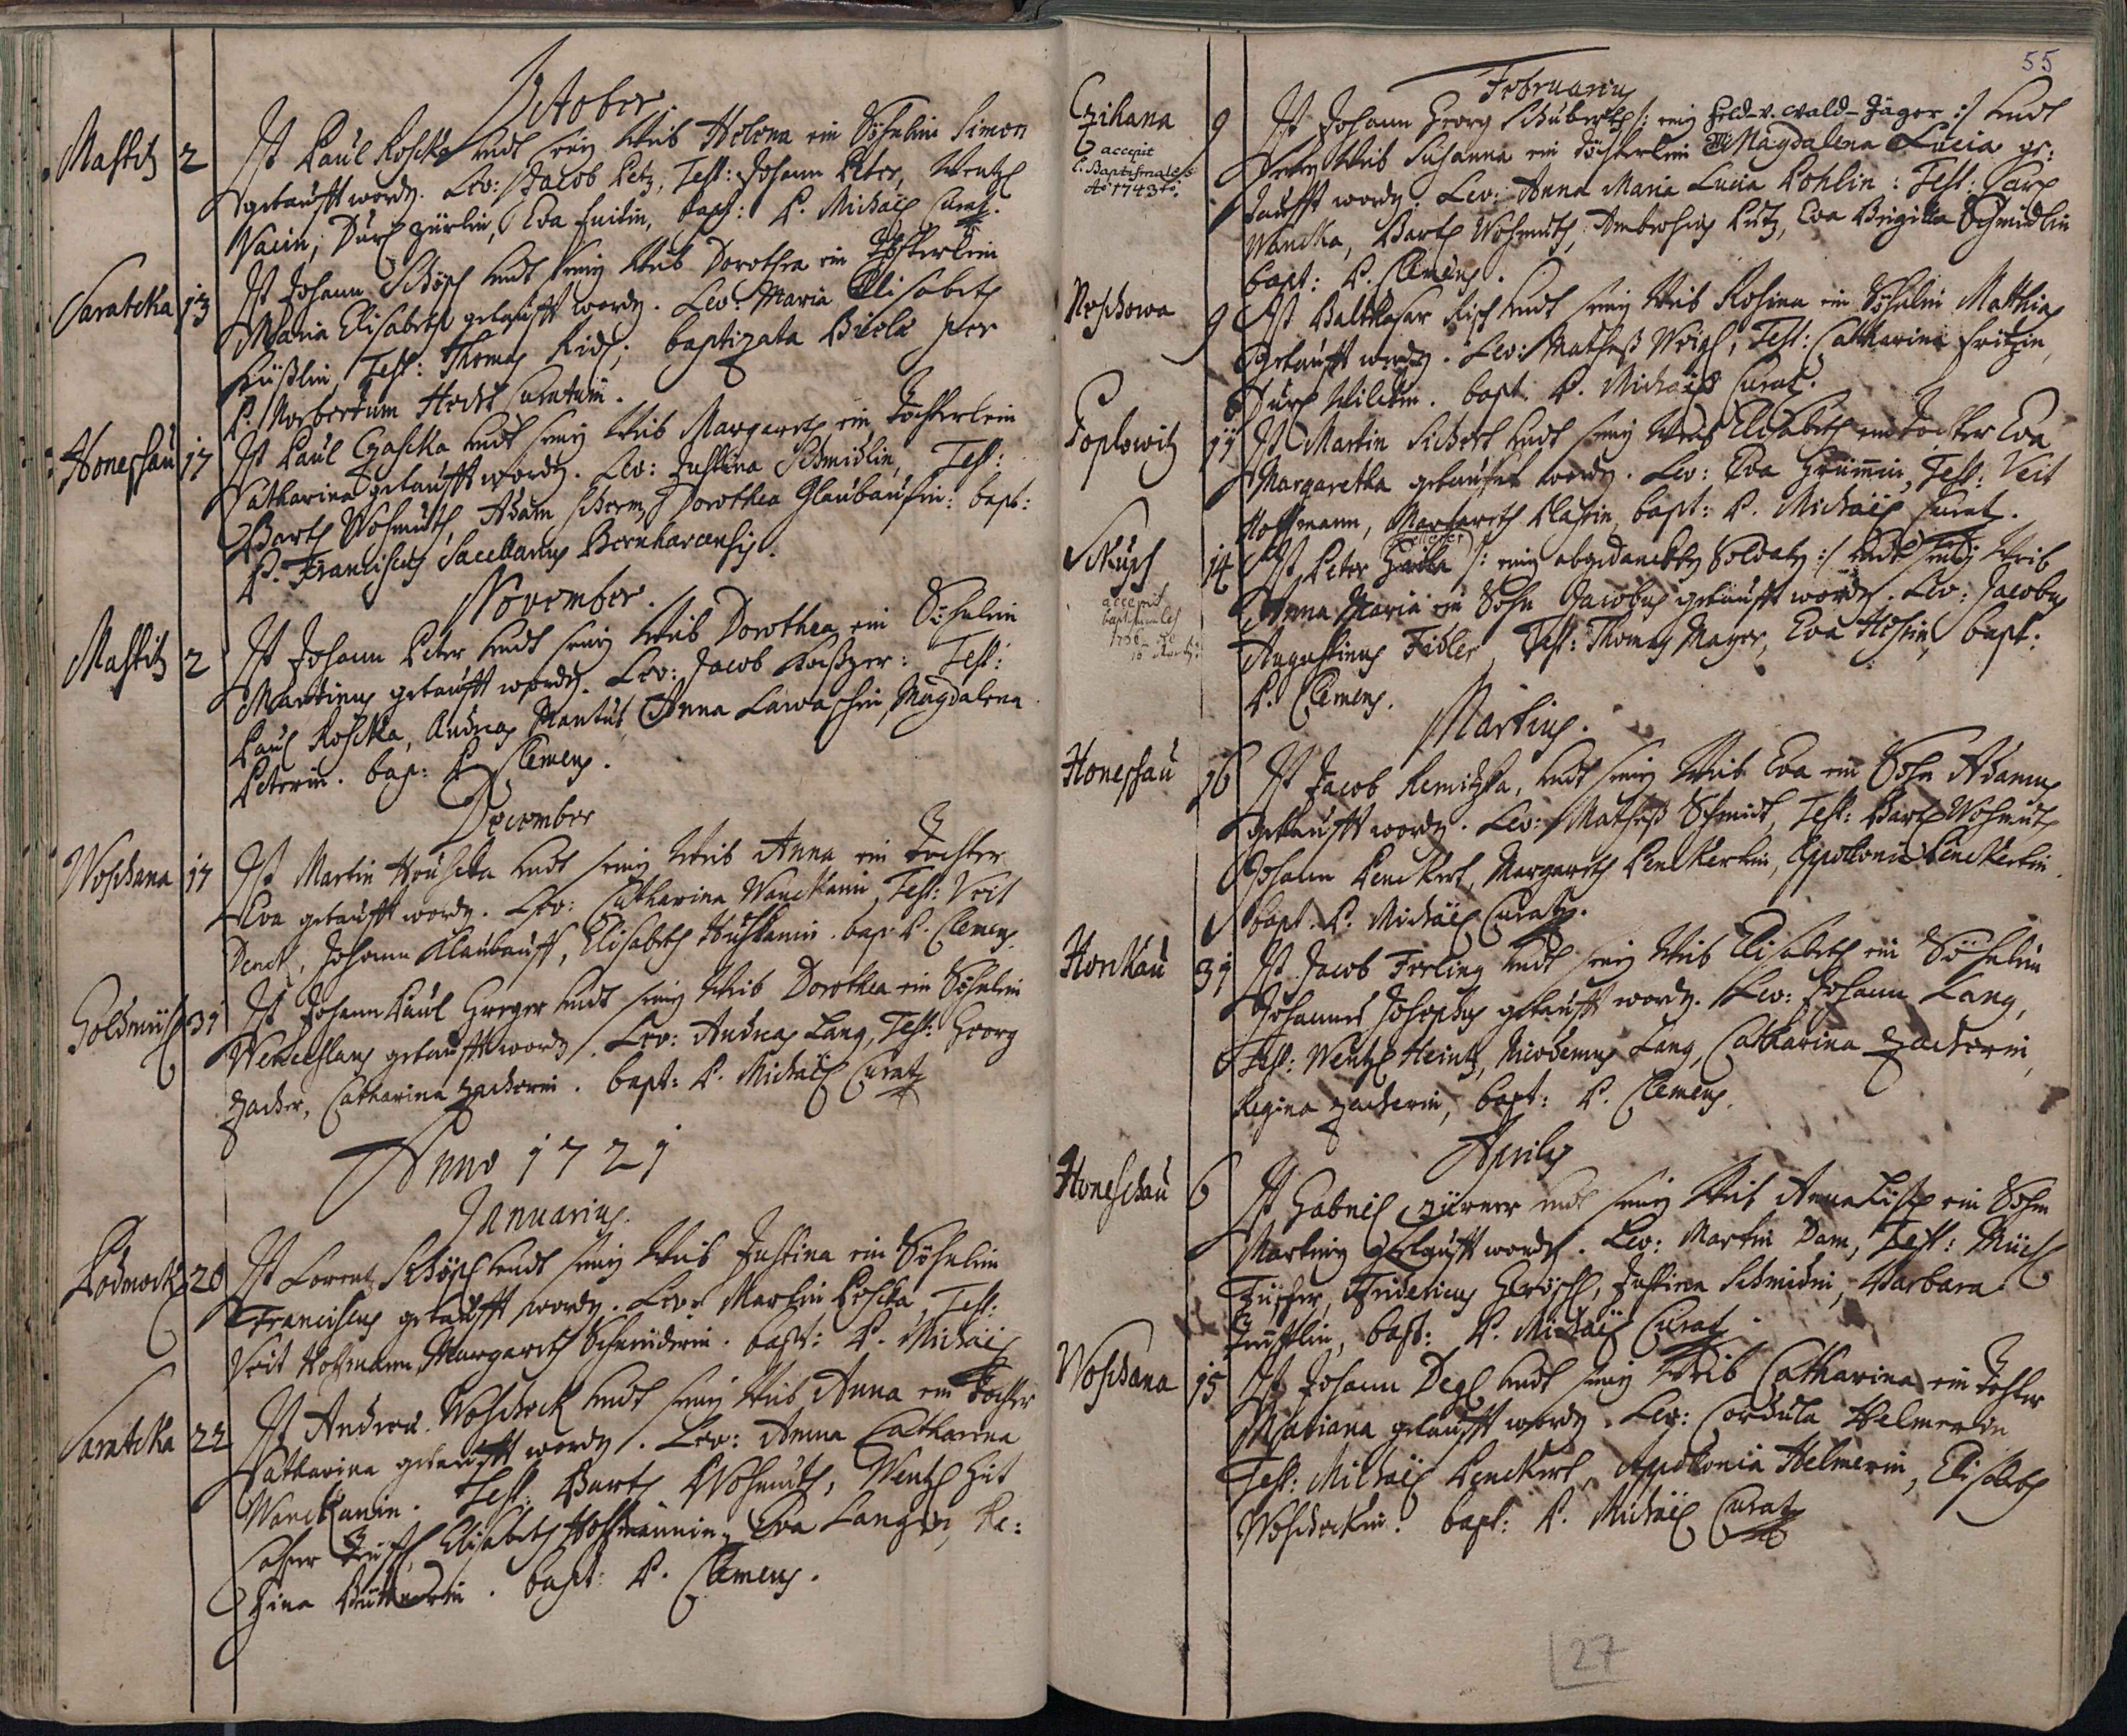 October
Mastitz 2 Ist Paul Roschka undt seiny Weib Helena ein Söhnlein Simon
getaufft wordy. Lev: Jacob Petz, Test: Johann Peter, Wentzl
Vacin, Eva bapt: P. Michäel Curat.
Saratcka 13 Ist Johann Schöpf undt seiny Weib Dorothea ein Töchterlein
Maria Elisabeth getaufft wordy. Lev: Maria Elisabeth
Test: Thomas baptizata Bielae per
P. Norbertum Hecht Curatum.
Honeschau 17 Ist Paul Czaschka undt seiny Weib Margareth ein Töchterlein
Catharina getaufft wordy. Lev: Justina Schmidlin, Test:
Barth Wohmuth, Adam Scherm, Dorothea Glaubaufin: bapt:
P. Franciscus Sacellanus Bernharcensis.
November.
Mastitz 2 Ist Johann Peter undt seiny Weib Dorothea ein Söhnlein
Martinus getaufft wordy. Lev: Jacob Test:
Paul Roschka, Andreas Mantus, Anna Magdalena
Peterin. bap: P. Clemens.
December
Woschana 17 Ist Martin Houschka undt seiny Weib Anna ein Tochter
Eva getaufft wordy. Lev: Catharina Wanckanin, Test: Veit
Denck, Johann Klaubauff, Elisabeth bap. P. Clemens.
Goldmühl 31 Ist Johann Paul Gregor undt seiny Weib Dorothea ein Söhnlein
Wenceslaus getaufft wordy. Lev: Andreas Lang, Test: Georg
Zacher, Catharina Zacherin. bapt: P. Michäel Curat
Anno 1721
Januarius.
Podmock 20 Ist Lorentz Schöpf undt seiny Weib Justina ein Söhnlein
Franciscus getaufft wordy. Lev: Martin Test:
Veit Hoffmann Margareth Schneiderin. bapt: P. Michäel
Saratcka 22 Ist Andreas Woscheck undt seiny Weib Anna ein Tochter
Catharina getaufft wordy. Lev: Anna Catharina
Wanckanin. Test: Barth Wohmuth, Wentzl
Elisabeth Hoffmannin, Eva Langin, Re:
gina bapt: P. Clemens.
55
Februarius
Czihana 9 Ist Johann Georg Schuberth /: einy Feld- v. Wald-Jäger :/ undt
accepit
L: Baptismales
Ao 1743tio
seiny Weib Susanna ein Töchterlein Magdalena Lucia ge:
taufft wordy. Lev: Anna Maria Lucia Pohlin: Test: Carl
Wancka, Barth Wohmuth, Ambrosius Putz, Eva Brigitta Schmidlin
bapt: P. Clemens.
Neschowa 9 Ist Balthasar Risch undt seiny Weib Rosina ein Söhnlein Matthias
getaufft wordy. Lev: Mathess Weigl, Test: Catharina Fritzin,
bapt. P. Michäel Curat.
Poplowitz 11 Ist Martin Sichert undt seiny Weib Elisabeth ein Tochter Eva
Margaretha getaufft wordy. Lev: Eva Test: Veit
Hoffmann, Margareth bapt: P. Michäel Curat.
Skupsch 14 Ist Peter /: einy abgedanckter Soldaty :/ undt seiny Weib
accepit
baptismales
Anna Maria ein Sohn Jacobus getaufft wordy. Lev: Jacobus
Augustinus Fidler, Test: Thomas Mayer, Eva bapt:
P. Clemens.
Martius.
Honeschau 16 Ist Jacob Remitschka, undt seiny Weib Eva ein Sohn Adamus
getaufft wordy. Lev: Mathess Schmidt, Test: Barth Wohmuth
Johann Penckert, Margareth Penckertin, Appollonia Penckertin.
bapt. P. Michäel Curat.
Honkau 31 Ist Jacob Ferling undt seiny Weib Elisabeth ein Söhnlein
Johannes Josephus getaufft wordy. Lev: Johann Lang,
Test: Wentzl Heintz, Nicodemus Lang, Catharina Zacherin,
Regina Zacherin, bapt: P. Clemens.
Aprilis
Honeschau 6 Ist Gabriel Zürner undt seiny Weib Anna ein Sohn
Martiny getaufft wordy. Lev: Martin Dam, Test: Michl
Fischer, Fridericus Justina Schmidin, Barbara
bapt: P. Michäel Curat.
Woschana 15 Ist Johann Degl undt seiny Weib Catharina ein Tochter
Mariana getaufft wordy. Lev: Cordula Helmerin
Test: Michäel Penckert, Appollonia Helmerin, Elisabeth
Woscheckin. bapt: P. Michäel Curat
27